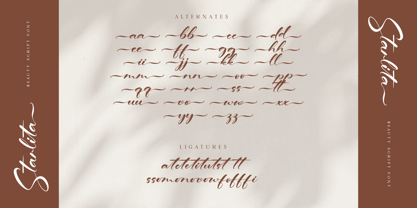 BEAUTY SCRIPT FONT
Starlita
ALTERNATES
aa bb cc dd
ee ff gg hh
ii jj kk ll
mm nn oo pp
qq rr ss tt
uu vv ww xx
yy zz
LIGATURES
Starlita
BEAUTY SCRIPT FONT